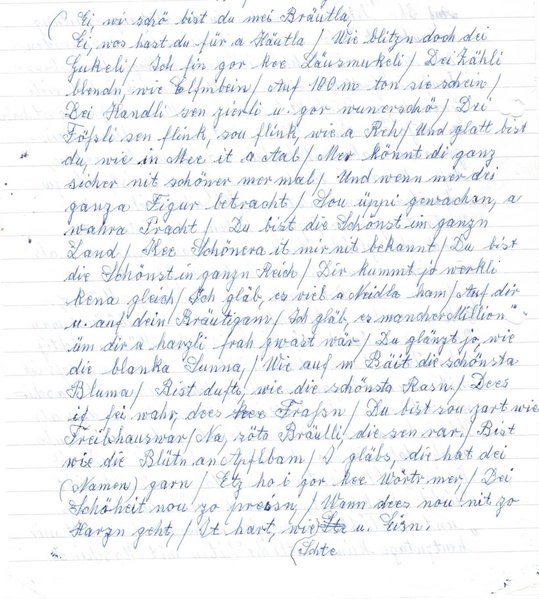 ( Ei, wi schö bist du mei Bräutla,
Ei, wos hast du für a Häutla / Wie blitzn doch dei
Gukeli / Ich fin gor kee Läusmukeli / Dei Zähli
blendn, wie Elfnbein / Auf 100 m ton sie schein /
Dei Handli sen zierli u. gor wunerschö / Dei
Fößli sen flink, sou flink, wie a Reh / Und glatt bist
du, wie in Mee it a Aal / Mer könnt di ganz
sicher nit schöner mer mal / Und wenn mer dei
ganza Figur betracht / Sou üppi gewachsn, a
wahra Pracht / Du bist die Schönst in ganzn
Land / Kee Schönera it mir nit bekannt / Du bist
die Schönst in ganzn Reich / Dir kummt jo werkli
kena gleich / Ich gläb, es viel a Neidla ham / Auf dir
u. auf dein Bräutigam / Ich gläb, es mancher Million
üm dir a harzli frah gwast wär / Du glänzt jo, wie
die blanka Sunna / Wie auf m Bäit die schönsta
Bluma / Bist dufts, wie die schönsta Rasn / Dees
it fei wahr, dees kee Fraßn / Du bist sou zart wie
Treibhauswar / Na, söta Bräutli, die sen rar. / Bist
wie die Blütn an Apflbam / I gläbs, die hat dei
(Namen) garn / Etz ho i gor kee Wörtr mer / Dei
Schöheit nou zo preisn / Wann dees nou nit zo
Harzn geht, / It hart, wie u. Eisn.
(Schte